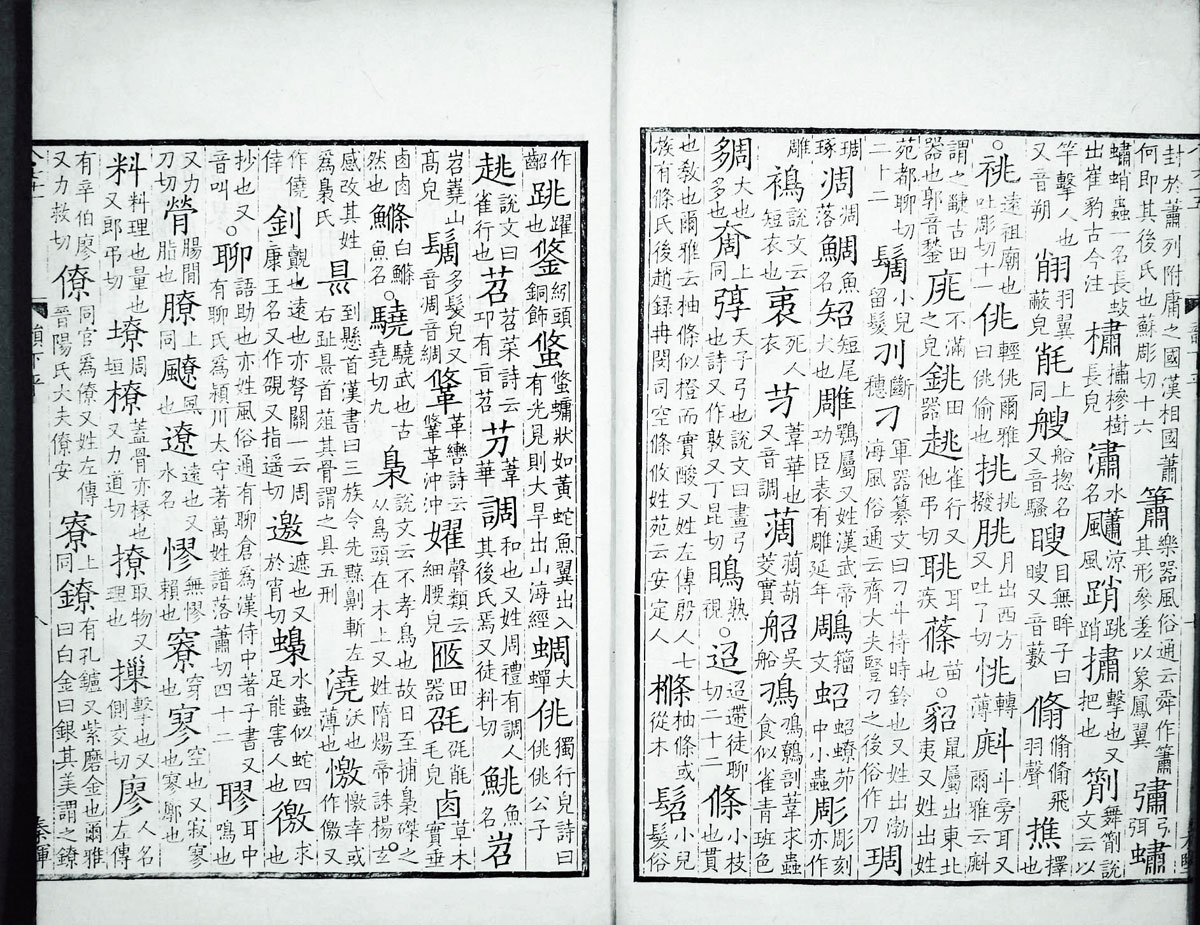 封於蕭列附庸之國漢相國蕭何即其後氏也蘇彫切十六簫樂器風俗通云舜作簫其形參差以象鳳翼彇弓弭蟰
蟰蛸蟲一名長蚑出崔豹古今注橚橚槮樹長皃潚水名涼風踃跳踃擊也又把也箾舞箾說文云以
竿擊人也又音朔羽翼蔽皃上同艘船揔名又音騷目無眸子曰瞍又音藪翛翛翛飛羽聲撨擇也
祧遠祖廟也吐彫切十一佻輕佻爾雅曰佻偷也挑挑撥朓月出西方又吐了切恌轉薄斗旁耳又爾雅云
謂之疀古田器也郭音鍫庣不滿之皃銚田器趒雀行又他弔切聎耳疾蓨苗也○貂鼠屬出東北夷又姓出姓
苑都聊切二十二小兒留髮刟斷穗刁軍器纂文曰刁斗持時鈴也又姓出渤海風俗通云齊大夫豎刁之後俗作刀琱
琱琢凋凋落鯛魚名短尾犬也雕鶚屬又姓漢武帝功臣表有雕延年鵰籀文蛁蛁蟟茆中小蟲彫彫刻亦作
雕說文云短衣也死人衣芀葦華也又音調蔐蔐葫菱實吳船鳭鳭鷯剖葦求蟲食似雀青班色
大也多也奝上同弴天子弓也說文曰畫弓也詩又作敦又丁昆切瞗熟視○迢迢遰徒聊切二十二條小枝也貫
也教也爾雅云柚條似橙而實酸又姓左傳殷人七族有條氏後趙錄冉閔司空條攸姓苑云安定人樤柚條或從木髫小兒髮俗
作齠跳躍也鋚紖頭銅飾狀如黃蛇魚翼出入有光見則大旱出山海經蜩大蟬佻獨行皃詩曰佻佻公子
趒說文曰雀行也苕苕菜詩云卭有旨苕芀葦華調和也又姓周禮有調人其後氏焉又徒料切鮡魚名岧
岧嶤山高皃多髮皃又音凋音綢鞗革轡詩云鞗革沖沖嬥聲類云細腰皃田器毛皃卤草木實垂
卤卤然也鰷白鰷魚名○驍驍武也古堯切九梟說文云不孝鳥也故日至捕梟磔之以鳥頭在木上又姓隋煬帝誅楊玄
感改其姓為梟氏到懸首漢書曰三族令先黥劓斬左右趾縣首葅其骨謂之具五刑澆沃也薄也憿憿幸或作儌又
作僥倖釗覿也遠也亦弩關一云周康王名又作又指遙切邀遮也又於宵切蟂水蟲似蛇四足能害人也徼求也
抄也又音叫○聊語助也亦姓風俗通有聊倉為漢侍中著子書又有聊氏為潁川太守著萬姓譜落蕭切四十二耳中鳴也
又力刀切膋腸間脂也膫上同飉風也遼遠也又水名憀無憀賴也竂穿也空也又寂寥也寥廓也
料料理也量也又郎弔切周垣橑蓋骨亦椽也又力道切撩取物又理也摷擊也又側交切廖人名左傳
有辛伯廖又力救切僚同官為僚又姓左傳晉陽氏大夫僚安寮上同鐐有孔鑪又紫磨金也爾雅曰白金曰銀其美謂之鐐